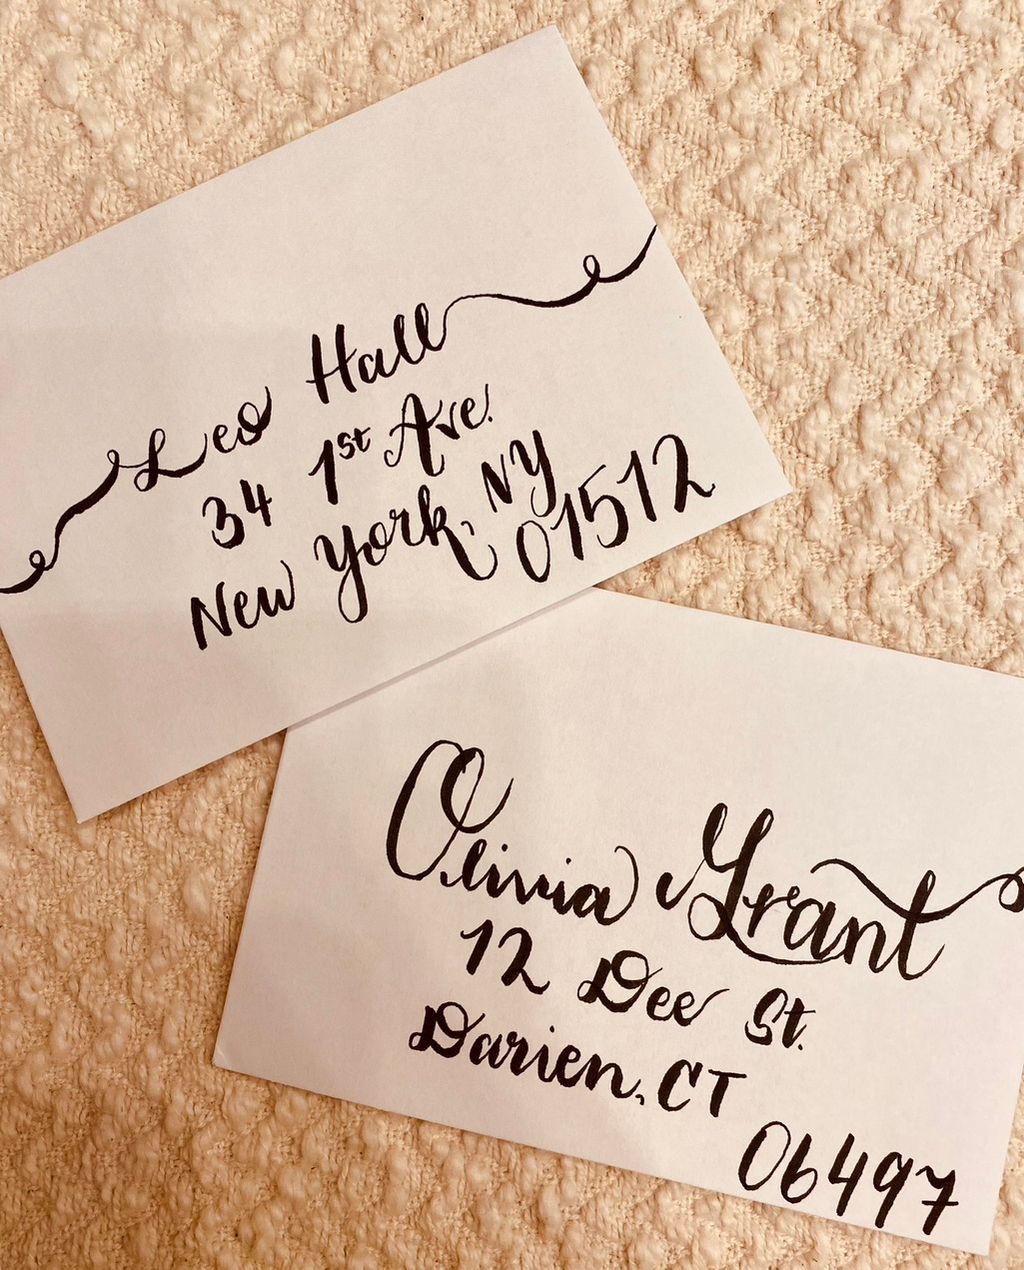 Leo Hall
34 1st Ave.
New York, NY
01512
Olivia Grant
12 Dee St.
Darien, CT
06497